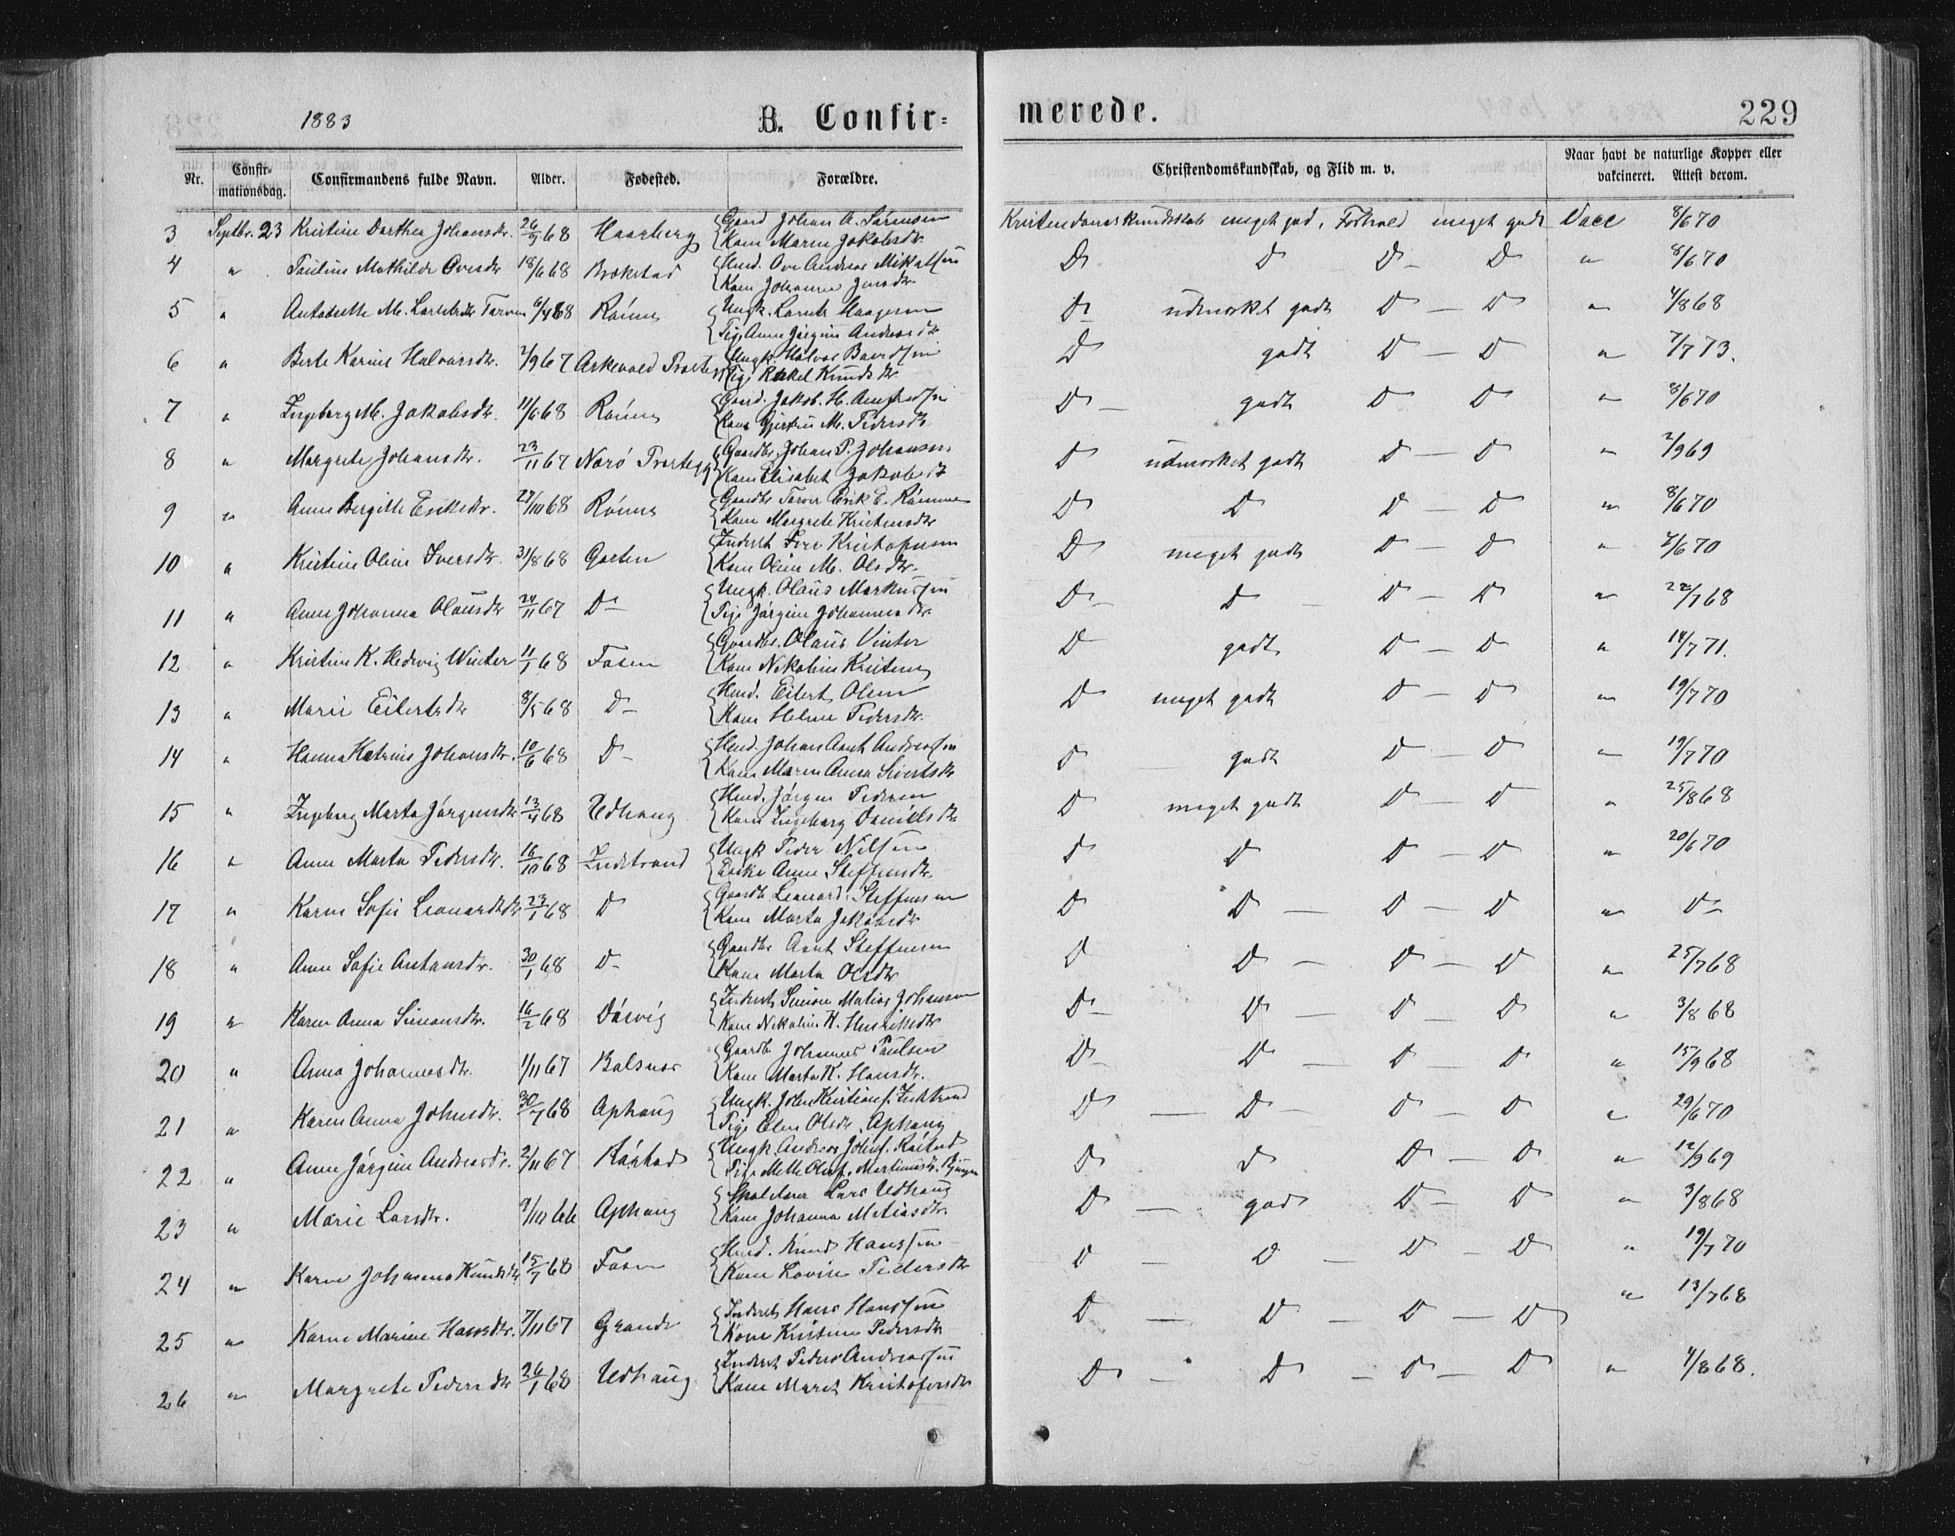 1883 B. Confir- merede. 229
Nr. Confir-mationsdag. Confirmandens fulde Navn. Alder. Fødested. Forældre. Christendomskundskab, og Flid m. v. Naar havt de naturlige Kopper eller vakcineret. Attest derom.
3 Septbr. 23 Kristine Dorthea Johansdr. 26/9 68 Haarberg Gaard Johan A. Sørensen Kristendomskundskab meget god, Forhold meget godt Vacc 8/6 70
Kone Maren Jakobsdr.
4 " Pauline Mathilde Ovesdr 18/6 68 Brekstad Husd. Ove Andreas Mikalsen D D D - D " 8/6 70
Kone Johanna Jensdr
5 " Antonette M. Larsdr Tarven 6/4 68 Rønne Ungk. Laurits Haagensen D udmærket godt D - D " 4/8 68
Pige Anne Jørgine Andreasdr
6 " Berte Karine Halvorsdr. 2/9 67 Askevold Præstegj Ungk. Halvor Baardsen D godt D - D " 7/7 73.
Pige Rakel Knudsdr
7 " Ingeborg M. Jakobsdr. 11/6 68 Rønne Gaard. Jakob H. D - godt D D " 8/6 70
Kone M. Pedersdr.
8 " Margrete Johansdr. 23/11 67 Nærø Præstegj Gaardbr. Johan P. Johansen D udmærket godt D - D " 2/9 69
Kone Elisabet Jakobsdr
9 " Anne Bergitte Eriksdr. 27/10 68 Rønne Gaardbr Tarver Erik E. Rønne D D D - D " 8/6 70
Kone Margrete Kristensdr
10 " Kristine Oline Iversdr. 31/8 68 Garten Inderst Iver Kristofersen D meget godt D - D " 2/6 70
Kone Oline M. Olsdr.
11 " Anne Johanna Olausdr 24/11 67 D - Ungk. Olaus Markussen D - D - D - D " 22/7 68
Pige Jørgine Johannesdr.
12 " Kristine K. Hedvig Winter 11/1 68 Fosen Gaardbr. Olaus Vinter D godt D - D " 14/7 71.
Kone Nikoline Kristensen
13 " Marie Eilertsdr 8/5 68 D - Husd. Eilert Olsen D meget godt D - D " 19/7 70
Kone Helene Pedersdr.
14 " Hanna Katrine Johansdr. 10/6 68 D - Husd. Johan Arnt Andreassen D godt D - D " 19/7 70
Kone Maren Anna Sivertsdr
15 " Ingeborg Marta Jørgensdr 13/4 68 Udhaug Husd. Jørgen Pedersen D meget godt D - D " 25/8 68
Kone Ingeborg Danielsdr
16 " Anne Marta Pedersdr. 16/10 68 Indstrand Ungk Peder Nilsen D D D - D " 20/6 70
Enke Anne Steffensdr.
17 " Karen Sofie Leonardsdr 23/1 68 D Gaardb Leonard Steffensen D D - D - D " D -
Kone Marta Jakobsdr
18 " Anne Sofie Antonsdr. 30/1 68 D - Gaardbr Arnt Steffensen D D - D - D " 25/7 68
Kone Marta Olsdr
19 " Karen Anna Simonsdr. 16/2 68 Døsvig Inderst Simon Matias Johansen D - D - D - D " 3/8 68
Kone Nikoline K. Henriksdr
20 " Anna Johannesdr. 1/11 67 Balsnes Gaardb Johannes Paulsen D - D - D - D " 15/9 68
Kone Marta K. Hansdr.
21 " Karen Anna Johnsdr. 30/7 68 Ophaug Ungk. John Kristians. Indstrand D - D - D - D " 29/6 70
Pige Elen Olsdr. Ophaug
22 " Anne Jørgine Andreasdr. 2/11 67 Røstad Ungk. Andreas Johns. Røstad D D D - D " 12/9 69
Pige Mette Olufs. Martinusdr. Bjugn
23 " Marie Larsdr. 9/10 66 Ophaug Lars Udhaug D - godt D - D " 3/8 68
Kone Johanna Matiasdr.
24 " Karen Johanna Knudsdr 15/7 68 Fosen Husd. Knud Hanssen D - D - D - D " 19/7 70
Kone Lovise Pedersdr
25 " Karen Marine Hansdr. 7/11 67 Grande Inderst Hans Hanssen D - D - D - D " 13/7 68
Kone Kristine Pedersdr
26 " Margrete Pedersdr 26/1 68 Udhaug Inderst Peder Andreassen D - D - D - D " 4/8 68.
Kone Maret Kristofersdr